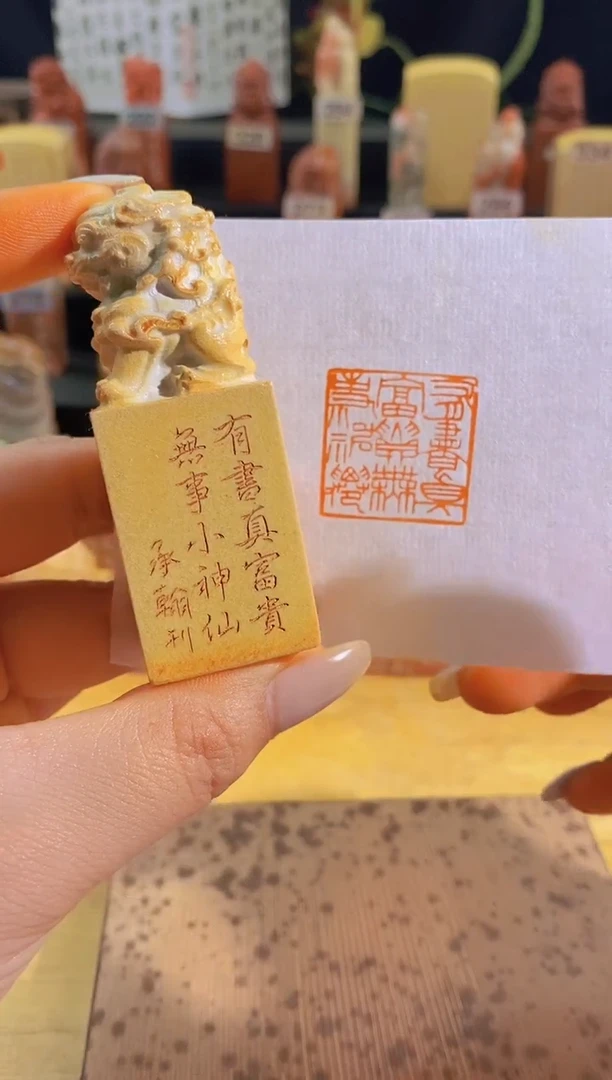 有書真富貴
無事小神仙
承翰刊
有書真
富貴無
事小神僊